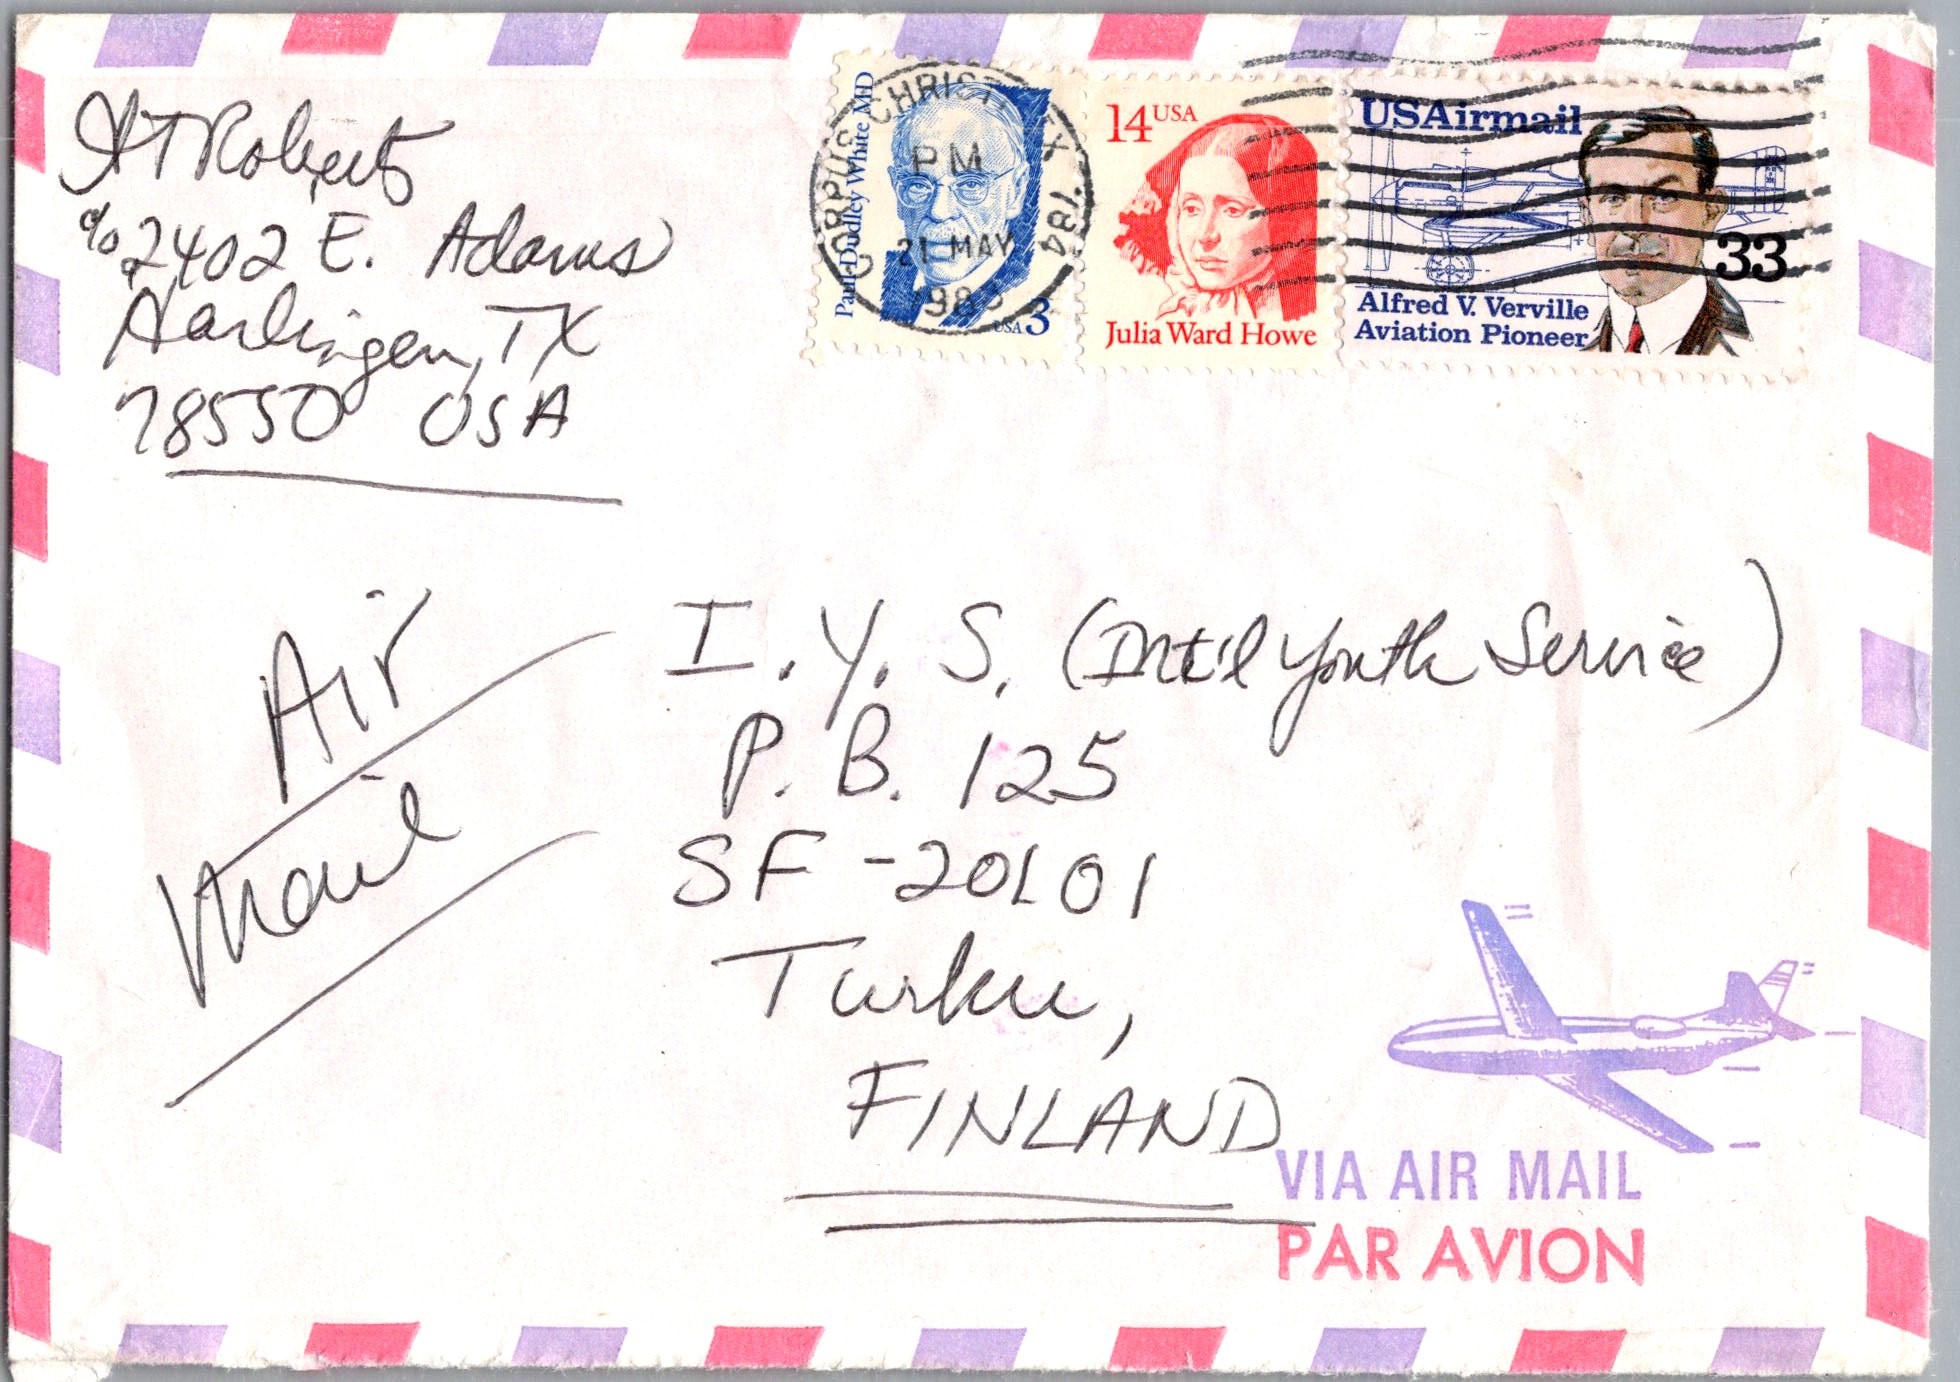 AT Roberts
c/o 2402 E. Adams
Harlingen, TX
78550 USA
Paul Dudley White MD
USA 3
CORPUS CHRISTI TX 784
PM
21 MAY
14 USA
Julia Ward Howe
USAirmail
33
Alfred V. Verville
Aviation Pioneer
Air
Mail
I.Y.S. (Int'l Youth Service)
P.B. 125
SF-20101
Turku,
FINLAND
VIA AIR MAIL
PAR AVION